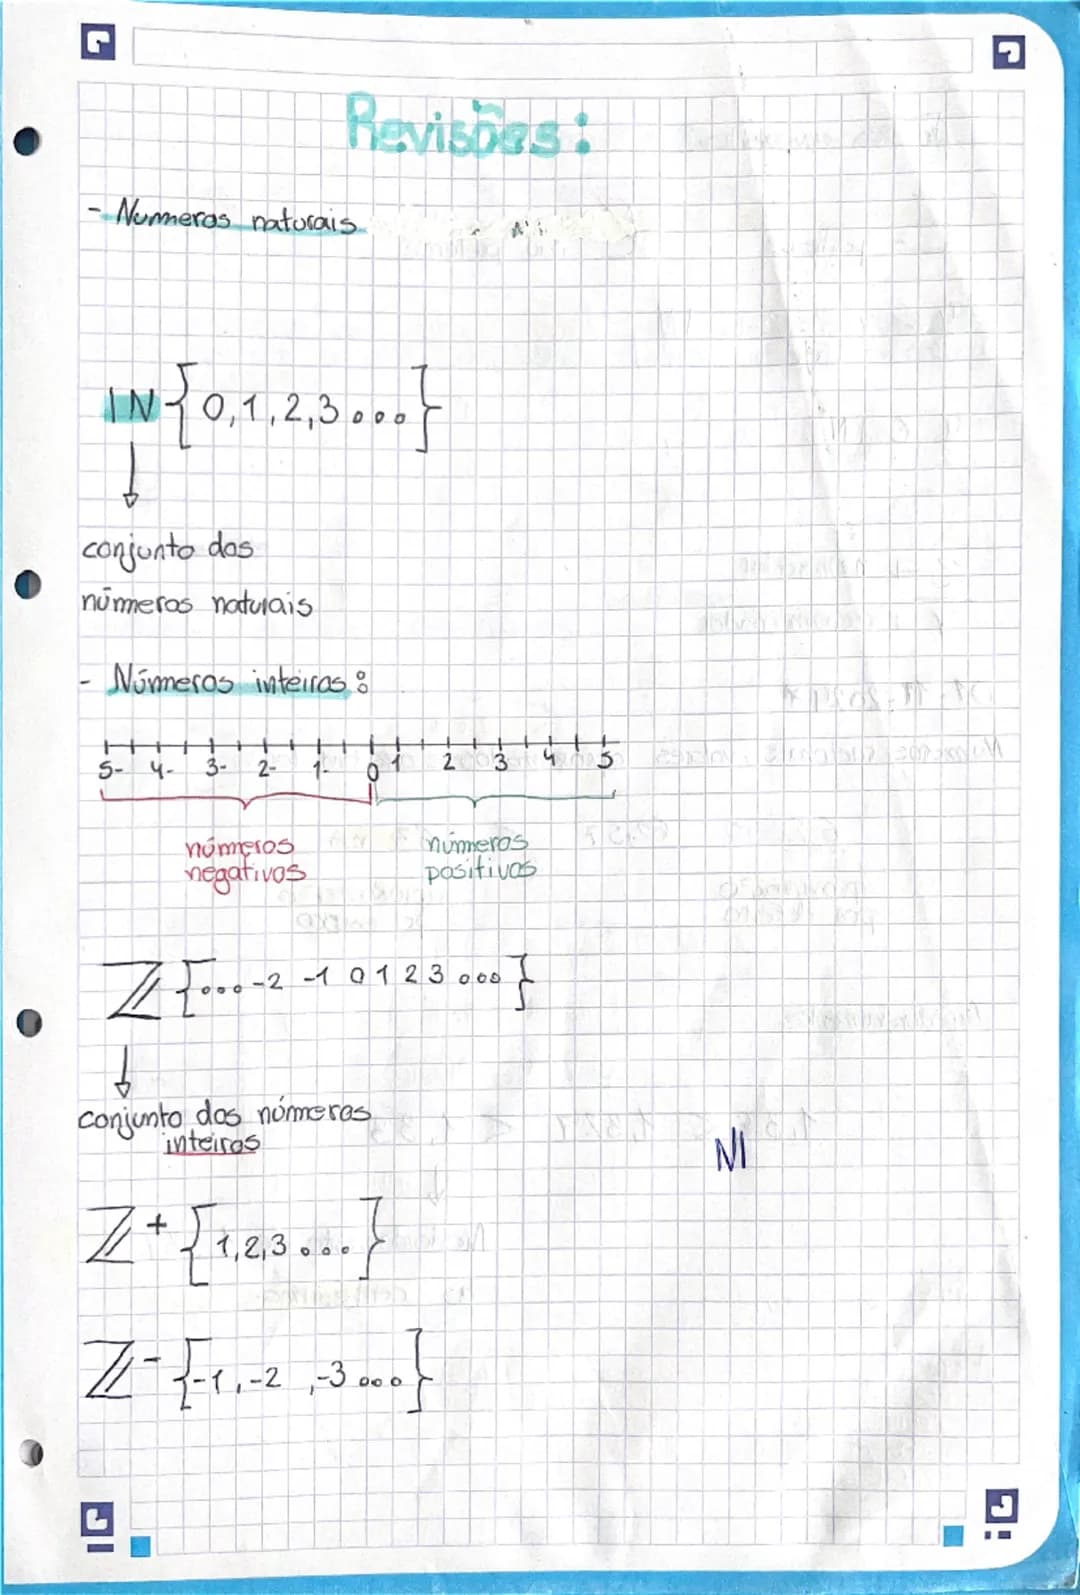 Revisões:
- Numeros naturais
IN {0,1,2,3...}
conjunto dos
números naturais
- Números inteiros:
5- 4- 3- 2- 1- 0 1 2 3 4 5
números negativos
números positivos
ℤ {...-2 -1 0 1 2 3 ...}
conjunto dos números
inteiros
NI
ℤ⁺ {1,2,3...}
ℤ⁻ {-1,-2,-3...}